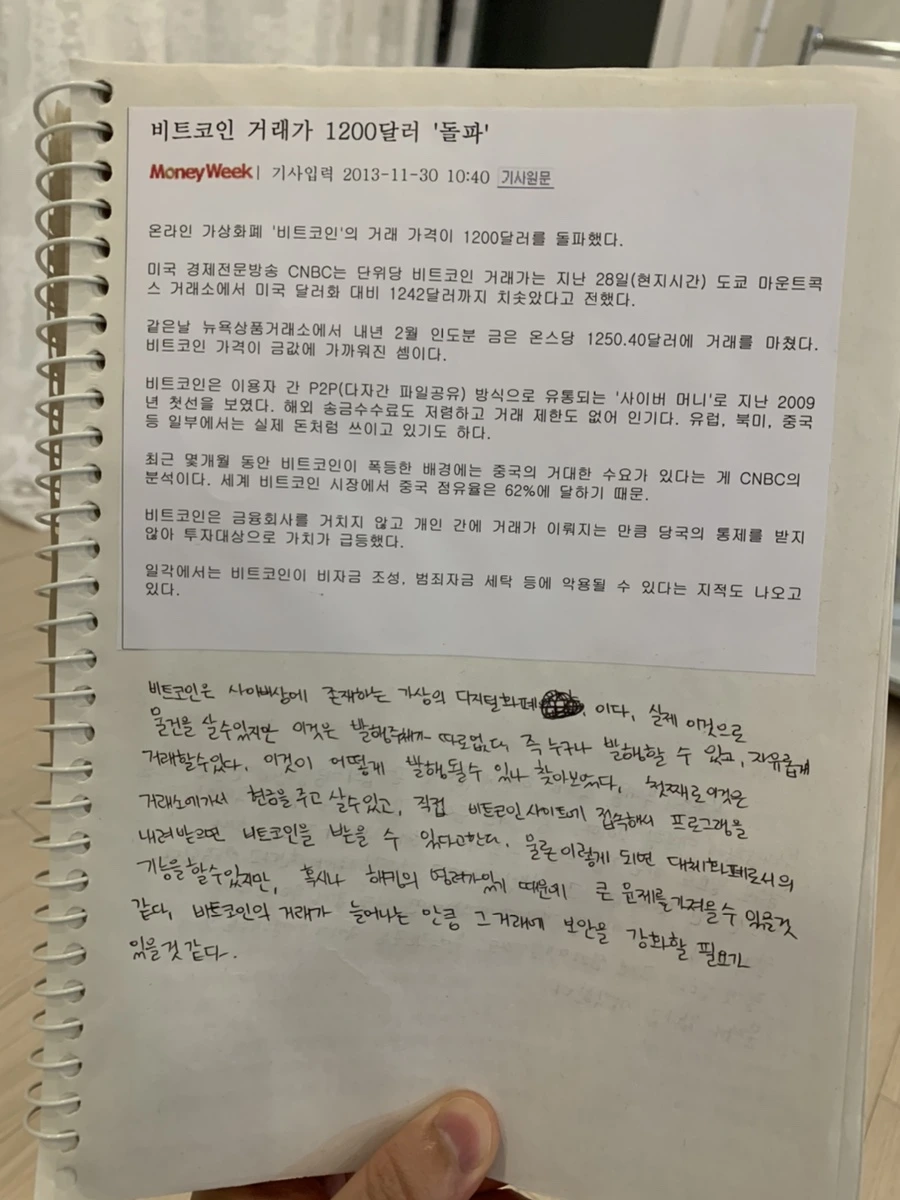 비트코인 거래가 1200달러 '돌파'
MoneyWeek | 기사입력 2013-11-30 10:40 기사원문
온라인 가상화폐 '비트코인'의 거래 가격이 1200달러를 돌파했다.
미국 경제전문방송 CNBC는 단위당 비트코인 거래가는 지난 28일(현지시간) 도쿄 마운트콕
스 거래소에서 미국 달러화 대비 1242달러까지 치솟았다고 전했다.
같은날 뉴욕상품거래소에서 내년 2월 인도분 금은 온스당 1250.40달러에 거래를 마쳤다.
비트코인 가격이 금값에 가까워진 셈이다.
비트코인은 이용자 간 P2P(다자간 파일공유) 방식으로 유통되는 '사이버 머니'로 지난 2009
년 첫선을 보였다. 해외 송금수수료도 저렴하고 거래 제한도 없어 인기다. 유럽, 북미, 중국
등 일부에서는 실제 돈처럼 쓰이고 있기도 하다.
최근 몇개월 동안 비트코인이 폭등한 배경에는 중국의 거대한 수요가 있다는 게 CNBC의
분석이다. 세계 비트코인 시장에서 중국 점유율은 62%에 달하기 때문.
비트코인은 금융회사를 거치지 않고 개인 간에 거래가 이뤄지는 만큼 당국의 통제를 받지
않아 투자대상으로 가치가 급등했다.
일각에서는 비트코인이 비자금 조성, 범죄자금 세탁 등에 악용될 수 있다는 지적도 나오고
있다.
비트코인은 사이버상에 존재하는 가상의 디지털화폐 이다. 실제 이것으로
물건을 살수있지만 이것은 발행주체가 따로없다. 즉 누구나 발행할 수 있고, 자유롭게
거래할수있다. 이것이 어떻게 발행될수 있나 찾아보았다. 첫째로 이것은
거래소에가서 현금을 주고 살수있고, 직접 비트코인사이트에 접속해서 프로그램을
내려받으면 비트코인을 받을 수 있다고한다. 물론 이렇게 되면 대체화폐로서의
기능을 할수있지만, 혹시나 해킹의 염려가있기 때문에 큰 문제를가져올수 있을것
같다. 비트코인의 거래가 늘어나는 만큼 그 거래에 보안을 강화할 필요가
있을것 같다.